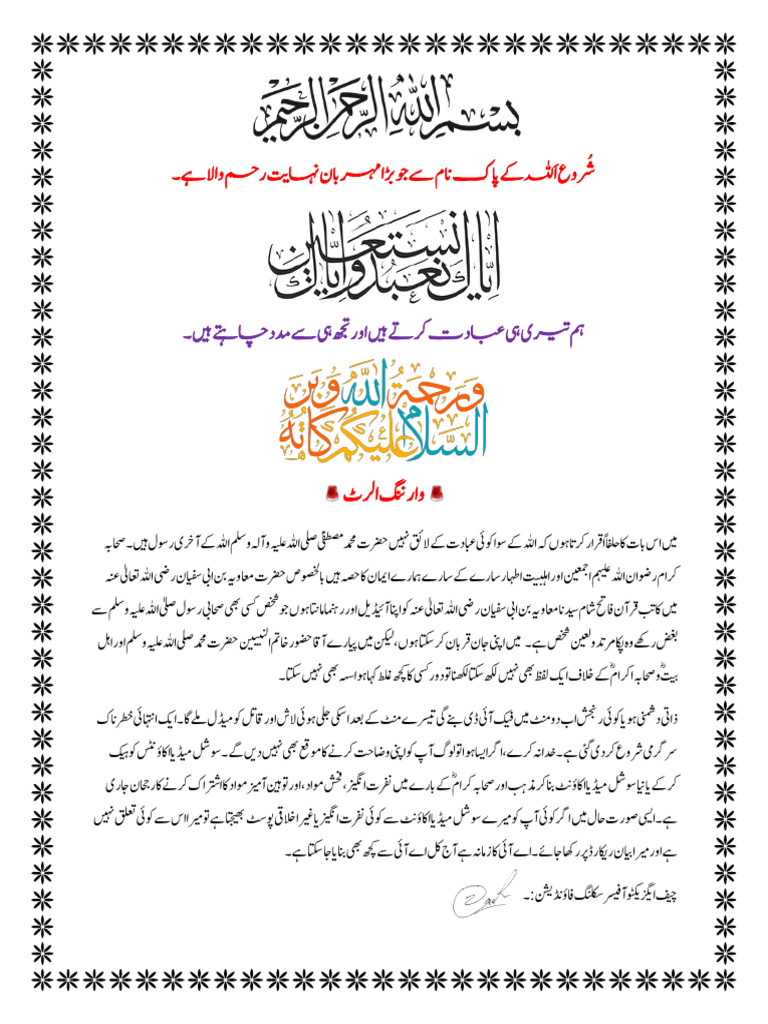 بسم الله الرحمن الرحيم
شُروع اللہ کے پاک نام سے جو بڑا مہربان نہایت رحم والا ہے۔
اياك نعبد واياك نستعين
ہم تیری ہی عبادت کرتے ہیں اور تجھ ہی سے مدد چاہتے ہیں۔
السلام عليكم ورحمة الله وبركاته
وارننگ الرٹ
میں اس بات کا حلفاً اقرار کرتا ہوں کہ اللہ کے سوا کوئی عبادت کے لائق نہیں حضرت محمد مصطفٰی صلی اللہ علیہ وآلہ وسلم اللہ کے آخری رسول ہیں۔ صحابہ
کرام رضوان اللہ علیہم اجمعین اور اہلبیت اطہار سارے کے سارے ہمارے ایمان کا حصہ ہیں بالخصوص حضرت معاویہ بن ابی سفیان رضی اللہ تعالیٰ عنہ
میں کاتب قرآن فاتح شام سیدنا معاویہ بن ابی سفیان رضی اللہ تعالیٰ عنہ کو اپنا آئیڈیل اور رہنما مانتا ہوں جو شخص کسی بھی صحابی رسول صلی اللہ علیہ وسلم سے
بغض رکھے وہ پکا مرتد و لعین شخص ہے۔ میں اپنی جان قربان کر سکتا ہوں، لیکن میں پیارے آقا حضور خاتم النبیین حضرت محمد صلی اللہ علیہ وسلم اور اہل
بیتؓ و صحابہ اکرامؓ کے خلاف ایک لفظ بھی نہیں لکھ سکتا لکھنا تو دور کسی کا کچھ غلط کہا ہوا سہہ بھی نہیں سکتا۔
ذاتی دشمنی ہو یا کوئی رنجش اب دو منٹ میں فیک آئی ڈی بنے گی تیسرے منٹ کے بعد اسکی جلی ہوئی لاش اور قاتل کو میڈل ملے گا۔ ایک انتہائی خطرناک
سرگرمی شروع کر دی گئی ہے۔ خدا نہ کرے، اگر ایسا ہوا تو لوگ آپ کو اپنی وضاحت کرنے کا موقع بھی نہیں دیں گے۔ سوشل میڈیا اکاؤنٹس کو ہیک
کر کے یا نیا سوشل میڈیا اکاؤنٹ بنا کر مذہب اور صحابہ کرامؓ کے بارے میں نفرت انگیز، فحش مواد، اور توہین آمیز مواد کا اشتراک کرنے کا رجحان جاری
ہے۔ ایسی صورت حال میں اگر کوئی آپ کو میرے سوشل میڈیا اکاؤنٹ سے کوئی نفرت انگیز یا غیر اخلاقی پوسٹ بھیجتا ہے تو میرا اس سے کوئی تعلق نہیں
ہے اور میرا بیان ریکارڈ پر رکھا جائے۔ اے آئی کا زمانہ ہے آج کل اے آئی سے کچھ بھی بنایا جا سکتا ہے۔
چیف ایگزیکٹو آفیسر سکلنگ فاؤنڈیشن:۔